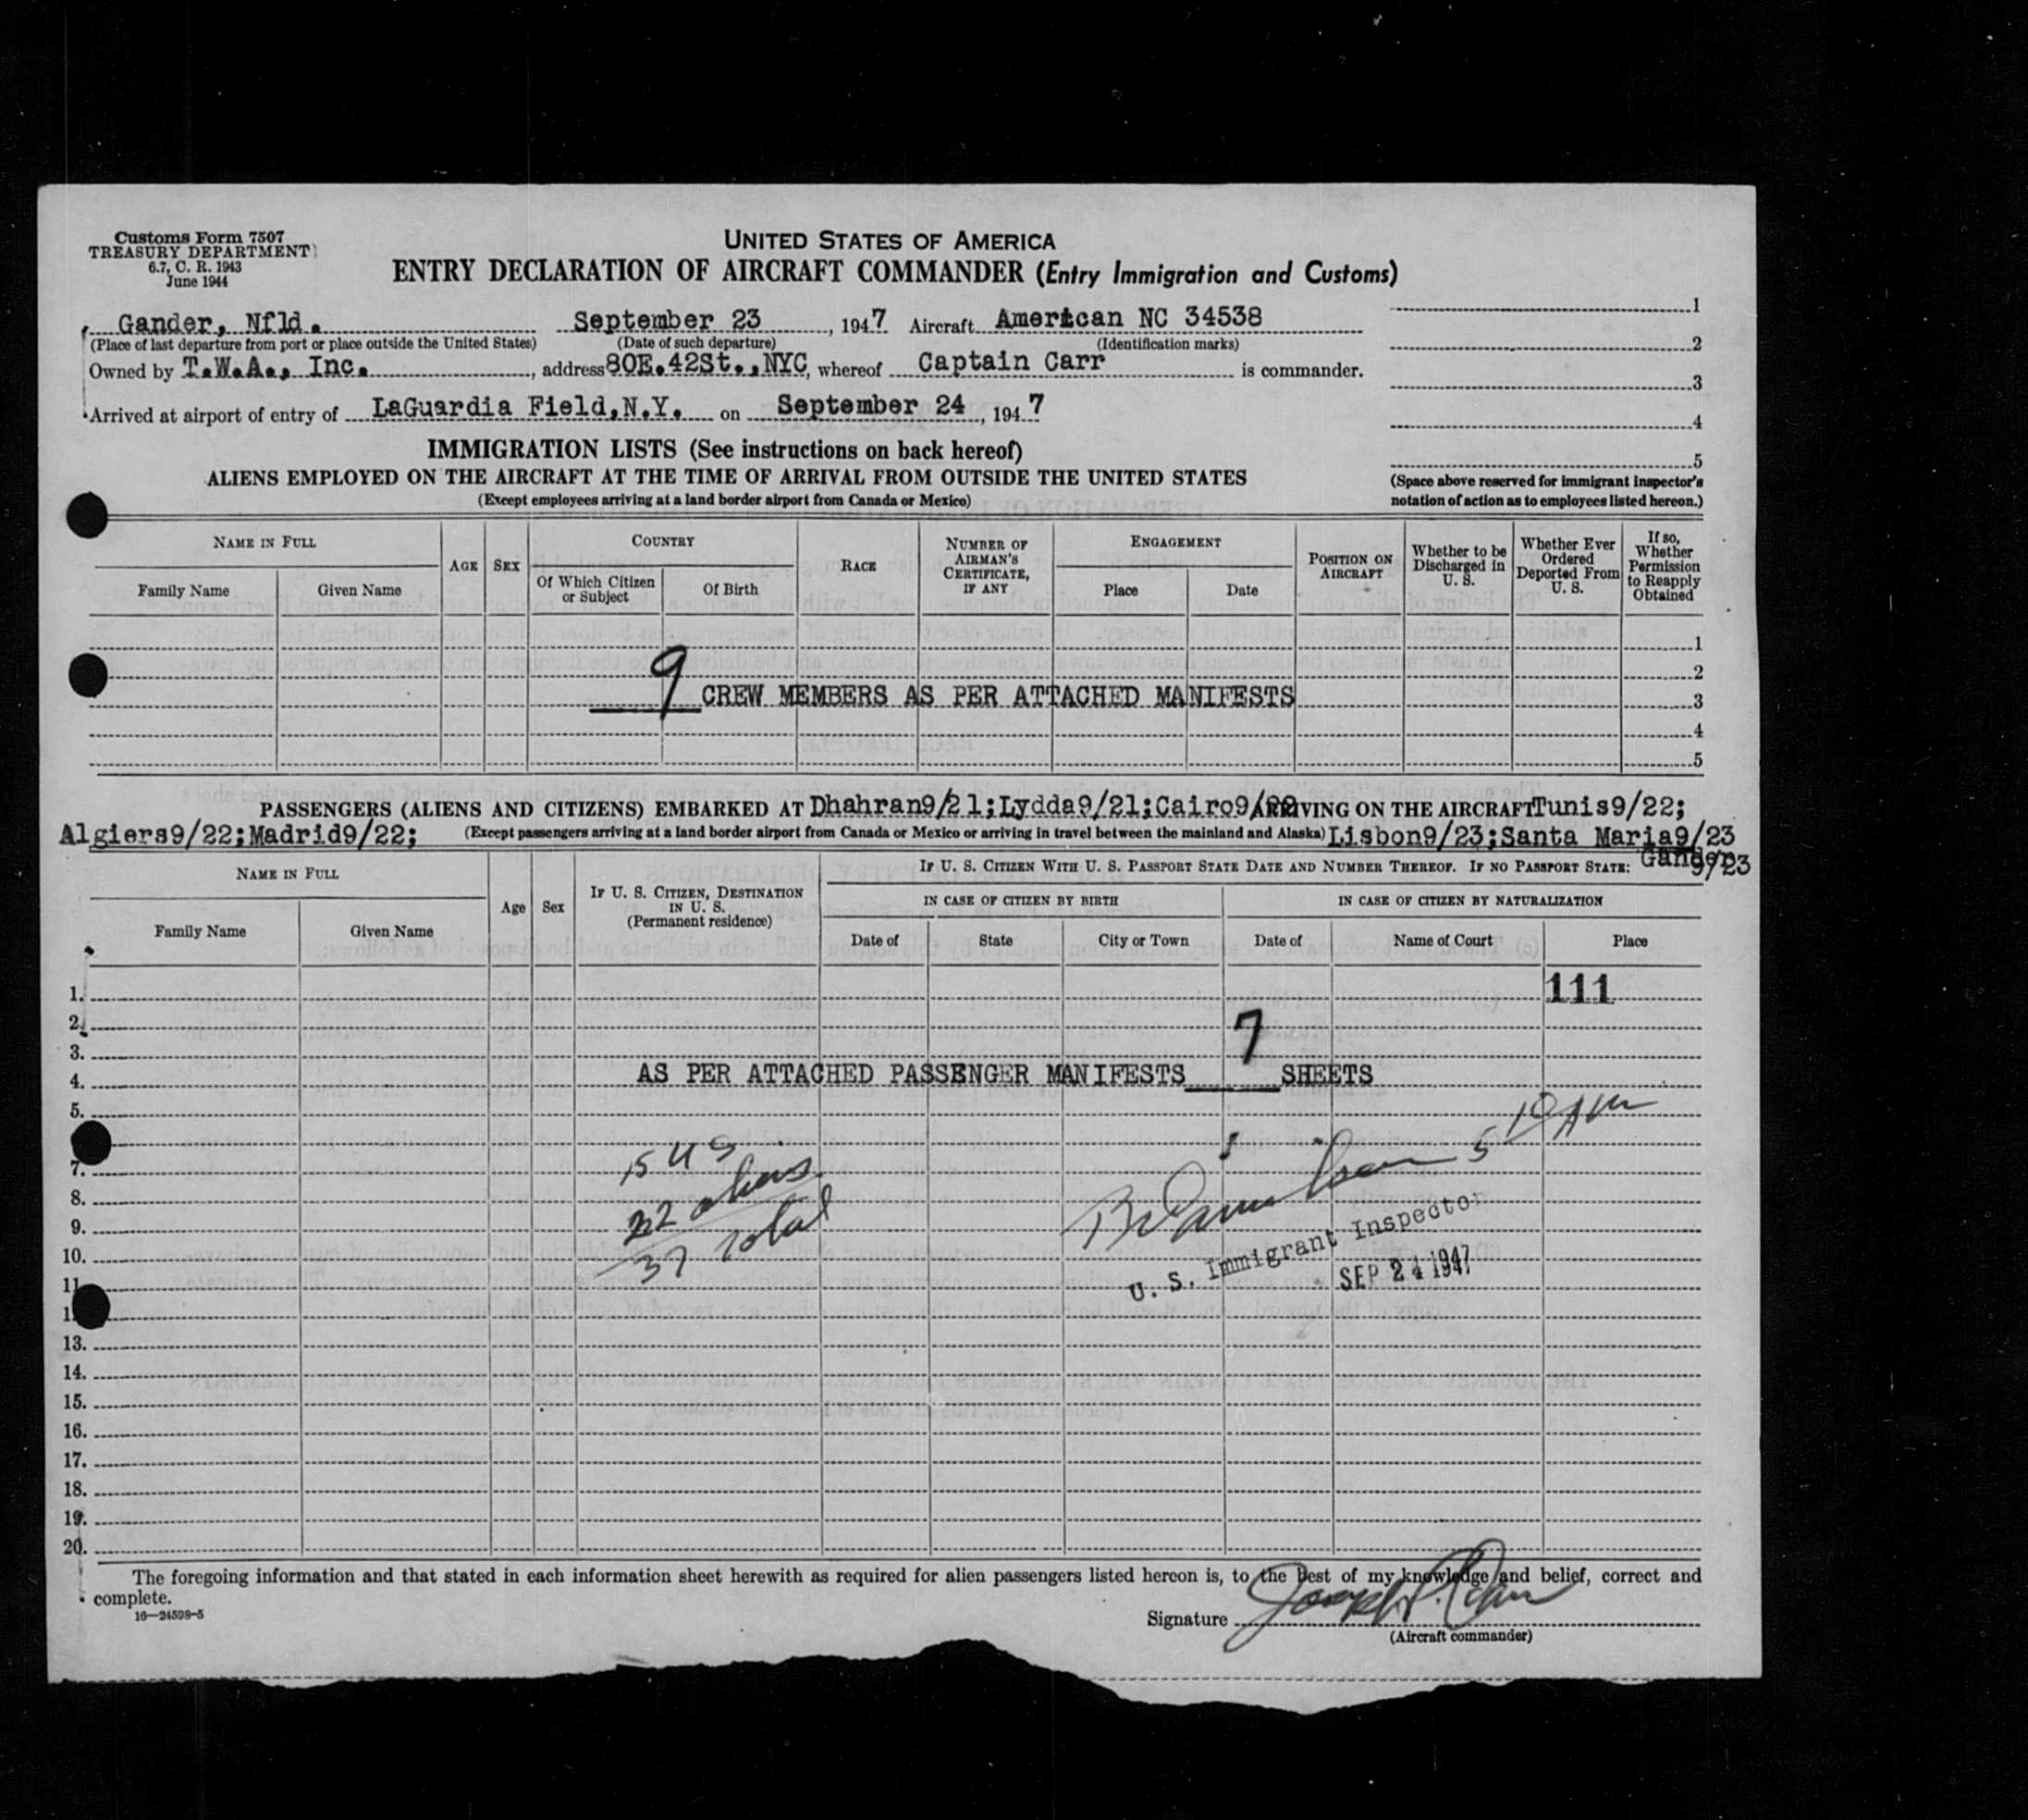 Customs Form 7507
TREASURY DEPARTMENT
6.7, C. R. 1943
June 1944
UNITED STATES OF AMERICA
ENTRY DECLARATION OF AIRCRAFT COMMANDER (Entry Immigration and Customs)
Gander, Nfld. September 23, 1947 Aircraft American NC 34538
(Place of last departure from port or place outside the United States) (Date of such departure) (Identification marks)
Owned by T.W.A., Inc., address 80E.42St.,NYC, whereof Captain Carr is commander.
Arrived at airport of entry of LaGuardia Field,N.Y. on September 24, 1947
1
2
3
4
5
(Space above reserved for immigrant inspector's
notation of action as to employees listed hereon.)
IMMIGRATION LISTS (See instructions on back hereof)
ALIENS EMPLOYED ON THE AIRCRAFT AT THE TIME OF ARRIVAL FROM OUTSIDE THE UNITED STATES
(Except employees arriving at a land border airport from Canada or Mexico)
NAME IN FULL
Family Name Given Name
AGE SEX
COUNTRY
Of Which Citizen or Subject Of Birth
RACE
NUMBER OF AIRMAN'S CERTIFICATE, IF ANY
ENGAGEMENT
Place Date
POSITION ON AIRCRAFT
Whether to be Discharged in U. S.
Whether Ever Ordered Deported From U. S.
If so, Whether Permission to Reapply Obtained
1
2
9 CREW MEMBERS AS PER ATTACHED MANIFESTS 3
4
5
PASSENGERS (ALIENS AND CITIZENS) EMBARKED AT Dhahran9/21;Lydda9/21;Cairo9/22 ARRIVING ON THE AIRCRAFT Tunis9/22;
Algiers9/22;Madrid9/22; (Except passengers arriving at a land border airport from Canada or Mexico or arriving in travel between the mainland and Alaska) Lisbon9/23;Santa Maria9/23
Gander 9/23
NAME IN FULL
Family Name Given Name
Age Sex
IF U. S. CITIZEN, DESTINATION IN U. S.
(Permanent residence)
IF U. S. CITIZEN WITH U. S. PASSPORT STATE DATE AND NUMBER THEREOF. IF NO PASSPORT STATE:
IN CASE OF CITIZEN BY BIRTH IN CASE OF CITIZEN BY NATURALIZATION
Date of State City or Town Date of Name of Court Place
1. 111
2.
3.
4. AS PER ATTACHED PASSENGER MANIFESTS 7 SHEETS
5.
5 10 AM
7. 15 US
8. 22 aliens
9. 37 total
10.
U. S. Immigrant Inspector
11
SEP 24 1947
1
13.
14.
15.
16.
17.
18.
19.
20.
The foregoing information and that stated in each information sheet herewith as required for alien passengers listed hereon is, to the best of my knowledge and belief, correct and
complete.
16—24598-5
Signature Joseph P. Carr
(Aircraft commander)